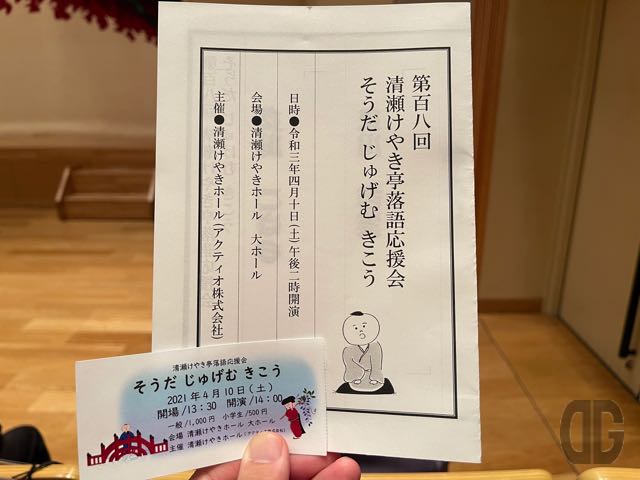 第百八回
清瀬けやき亭落語応援会
そうだ じゅげむ きこう
日時●令和三年四月十日(土)午後二時開演
会場●清瀬けやきホール 大ホール
主催●清瀬けやきホール(アクティオ株式会社)
清瀬けやき亭落語応援会
そうだ じゅげむ きこう
2021年4月10日(土)
開場/13:30 開演/14:00
一般/1,000円 小学生/500円
会場 清瀬けやきホール 大ホール
主催 清瀬けやきホール
DG